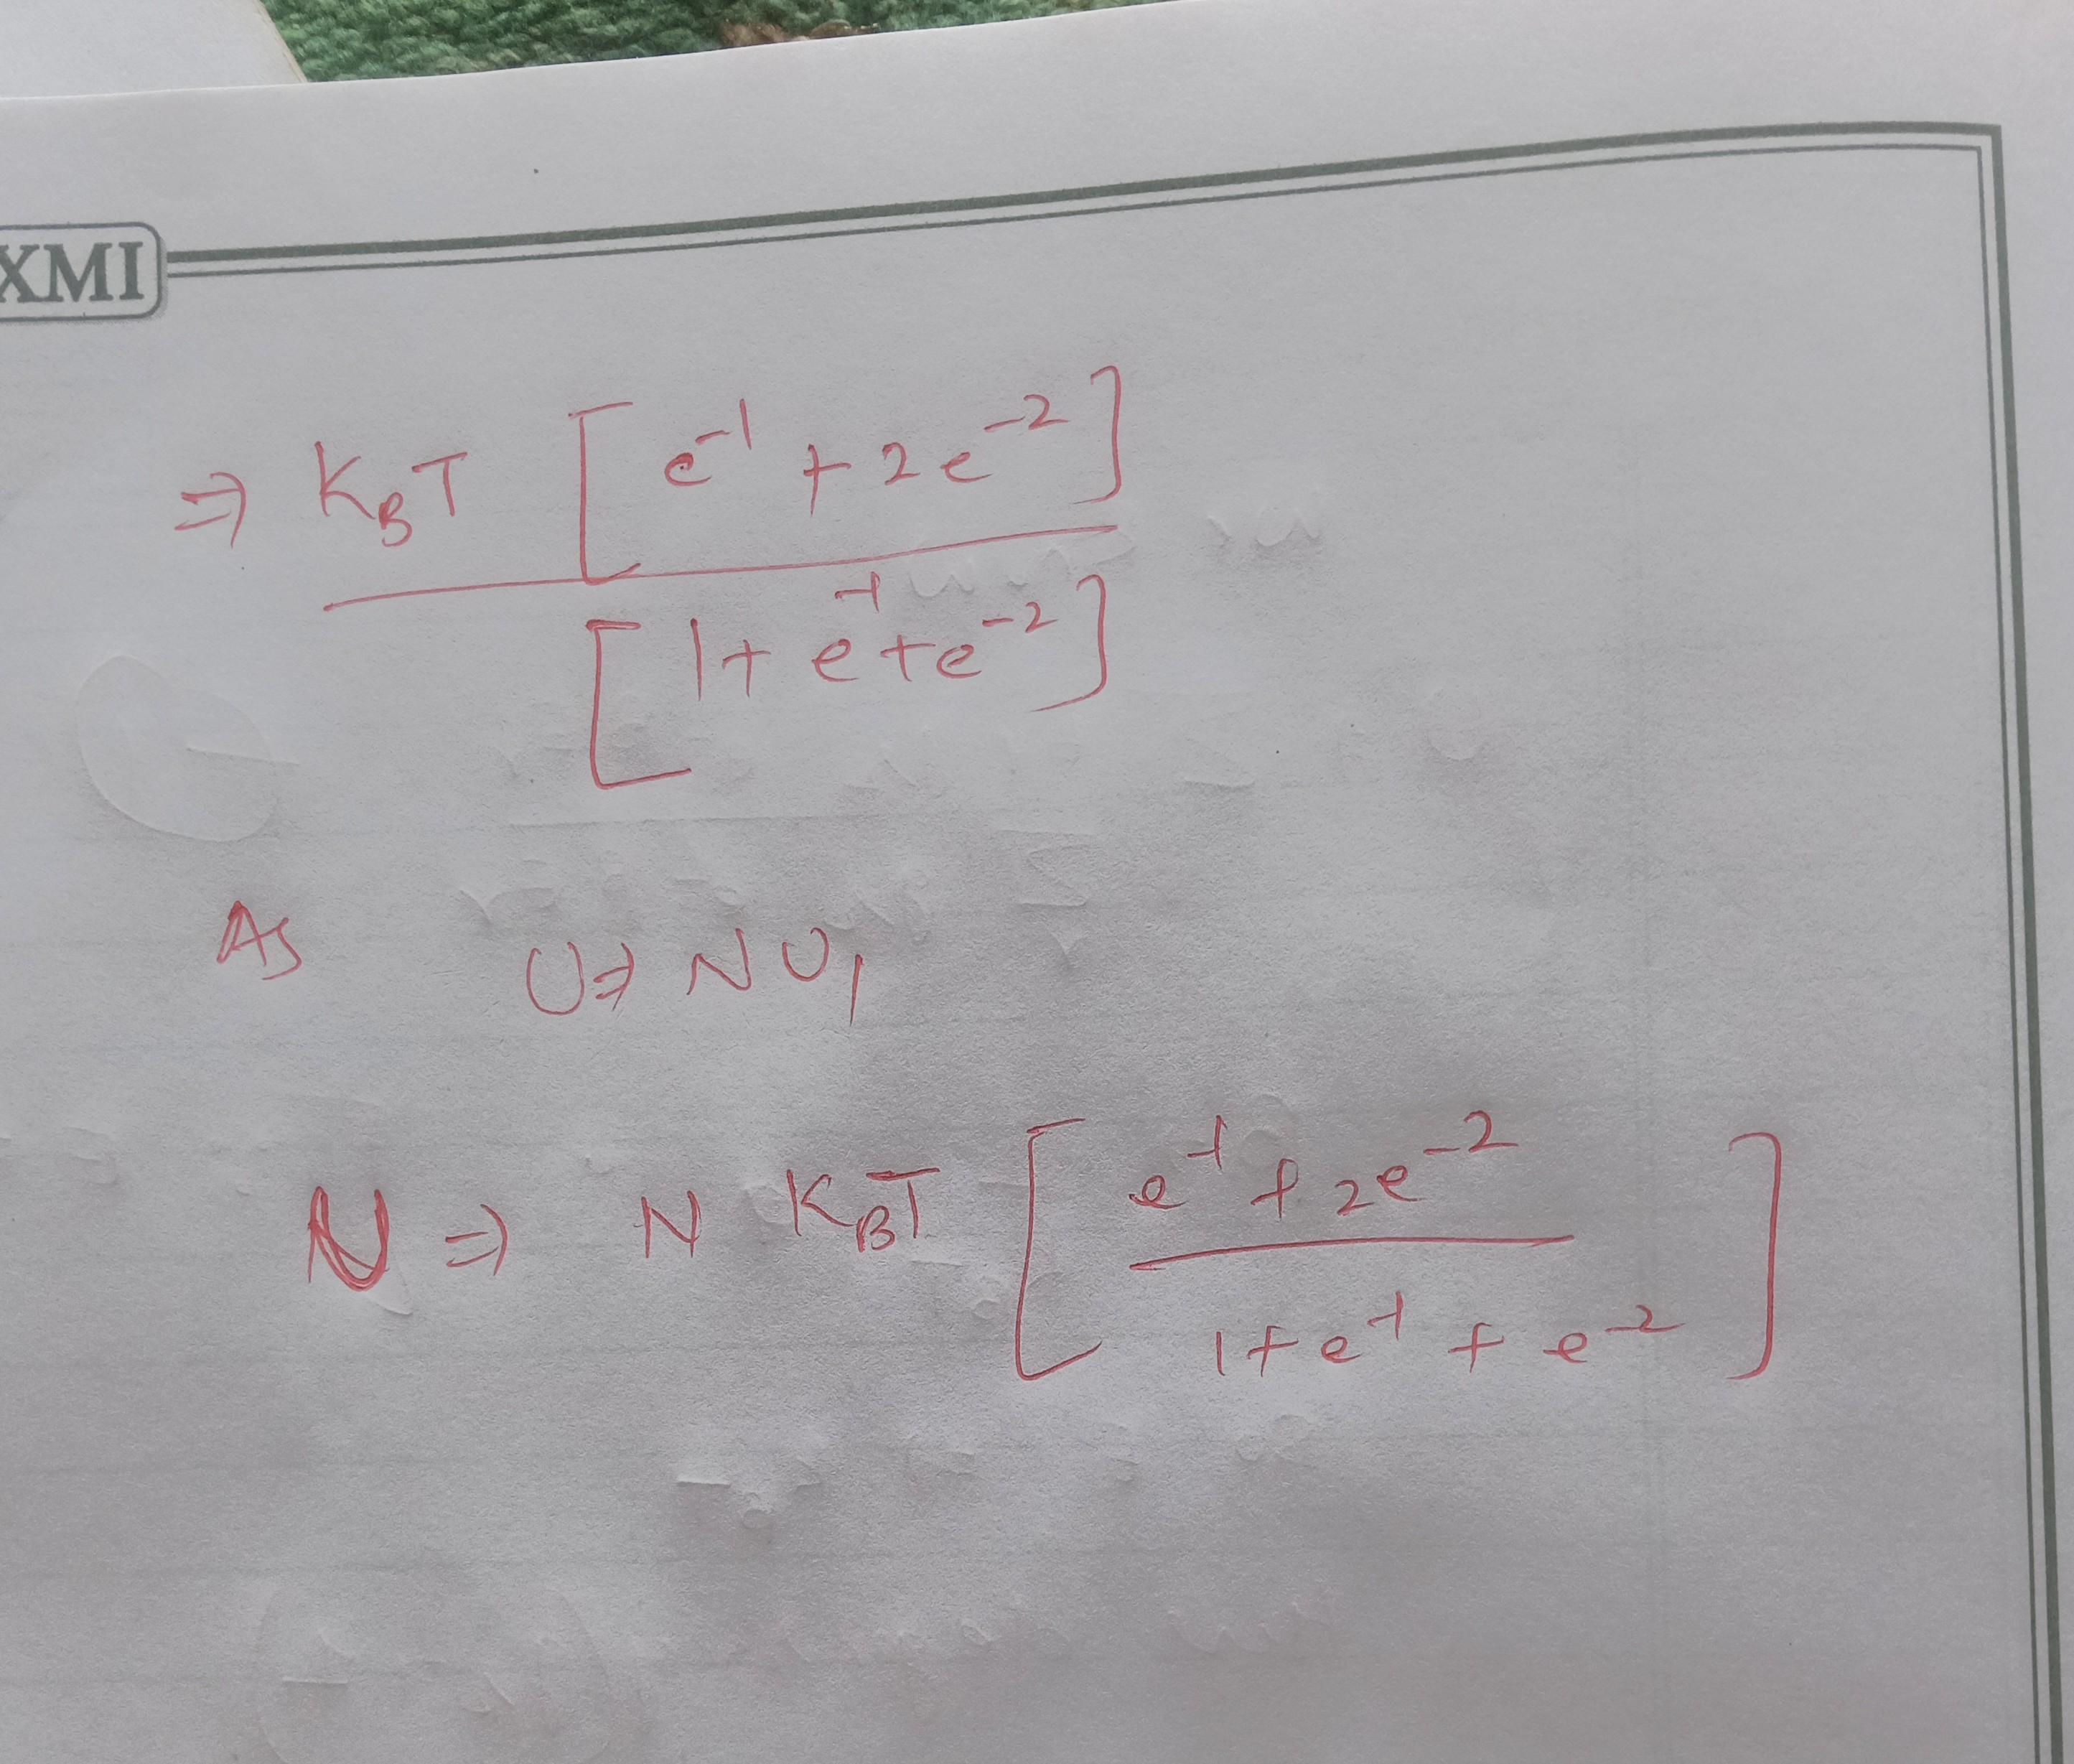 XMI
⇒ K_B T [e^-1 + 2e^-2]
[1 + e^-1 + e^-2]
As U ⇒ N U_1
U ⇒ N K_B T [ e^-1 + 2e^-2
1 + e^-1 + e^-2 ]